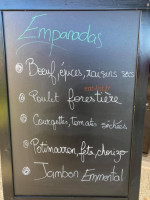 Empanadas
Bœuf, épices, raisins secs
Poulet forestière
Courgettes, tomates séchées
Potimarron, féta, chorizo
Jambon Emmental